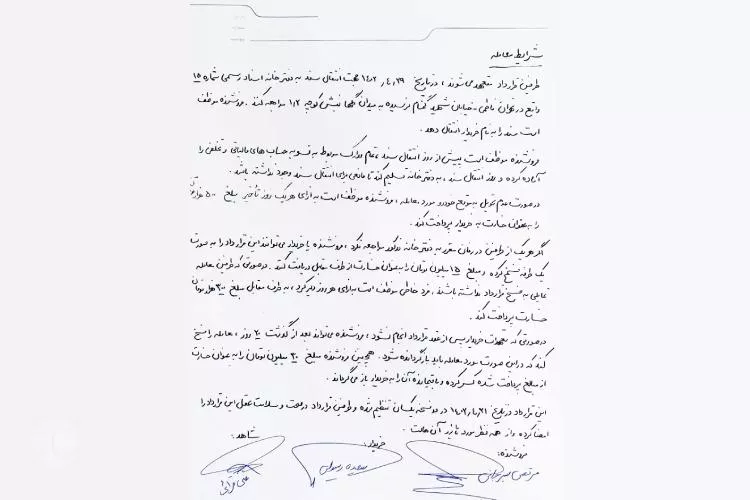 شرایط معامله
طرفین قرارداد متعهد می شوند، در تاریخ جهت انتقال سند به دفترخانه اسناد رسمی شماره ۱۵
واقع در تهران خیابان شهید گمنام نرسیده به میدان گلها نبش کوچه ۱/۲ مراجعه کنند. فروشنده موظف
است سند را به نام خریدار انتقال دهد.
فروشنده موظف است پیش از روز انتقال سند، تمام مدارک مربوط به تسویه حساب های مالیاتی و خلافی را
آماده کرده و روز انتقال سند، به دفترخانه تسلیم کند تا مانعی برای انتقال سند وجود نداشته باشد.
در صورت عدم تحویل به موقع خودرو مورد معامله، فروشنده موظف است به ازای هر یک روز تأخیر مبلغ
را به عنوان خسارت به خریدار پرداخت کند.
اگر هر یک از طرفین در زمان مقرر به دفترخانه مذکور مراجعه نکرد، فروشنده یا خریدار می تواند این قرارداد را به صورت
یک طرفه فسخ کرده و مبلغ ۱۵ میلیون تومان را به عنوان خسارت از طرف مقابل دریافت کند. در صورتی که طرفین معامله
تمایلی به فسخ قرارداد نداشته باشند، فرد خاطی موظف است به ازای هر روز دیرکرد، به طرف مقابل مبلغ ۳۰۰ هزار تومان
خسارت پرداخت کند.
در صورتی که تعهدات خریدار پس از عقد قرارداد انجام نشود، فروشنده می تواند بعد از گذشت ۲۰ روز، معامله را فسخ
کند که در این صورت مورد معامله باید بازگردانده شود. همچنین فروشنده مبلغ ۳۰ میلیون تومان را به عنوان خسارت
از مبلغ پرداخت شده کسر کرده و باقیمانده آن را به خریدار باز می گرداند.
این قرارداد در تاریخ در دو نسخه یکسان تنظیم شده و طرفین قرارداد در صحت و سلامت عقل این قرارداد را
امضا کرده و از همه نظر مورد تایید آن هاست.
فروشنده:
خریدار:
شاهد:
مرتضی
سعیده رسولی
علی قرائی